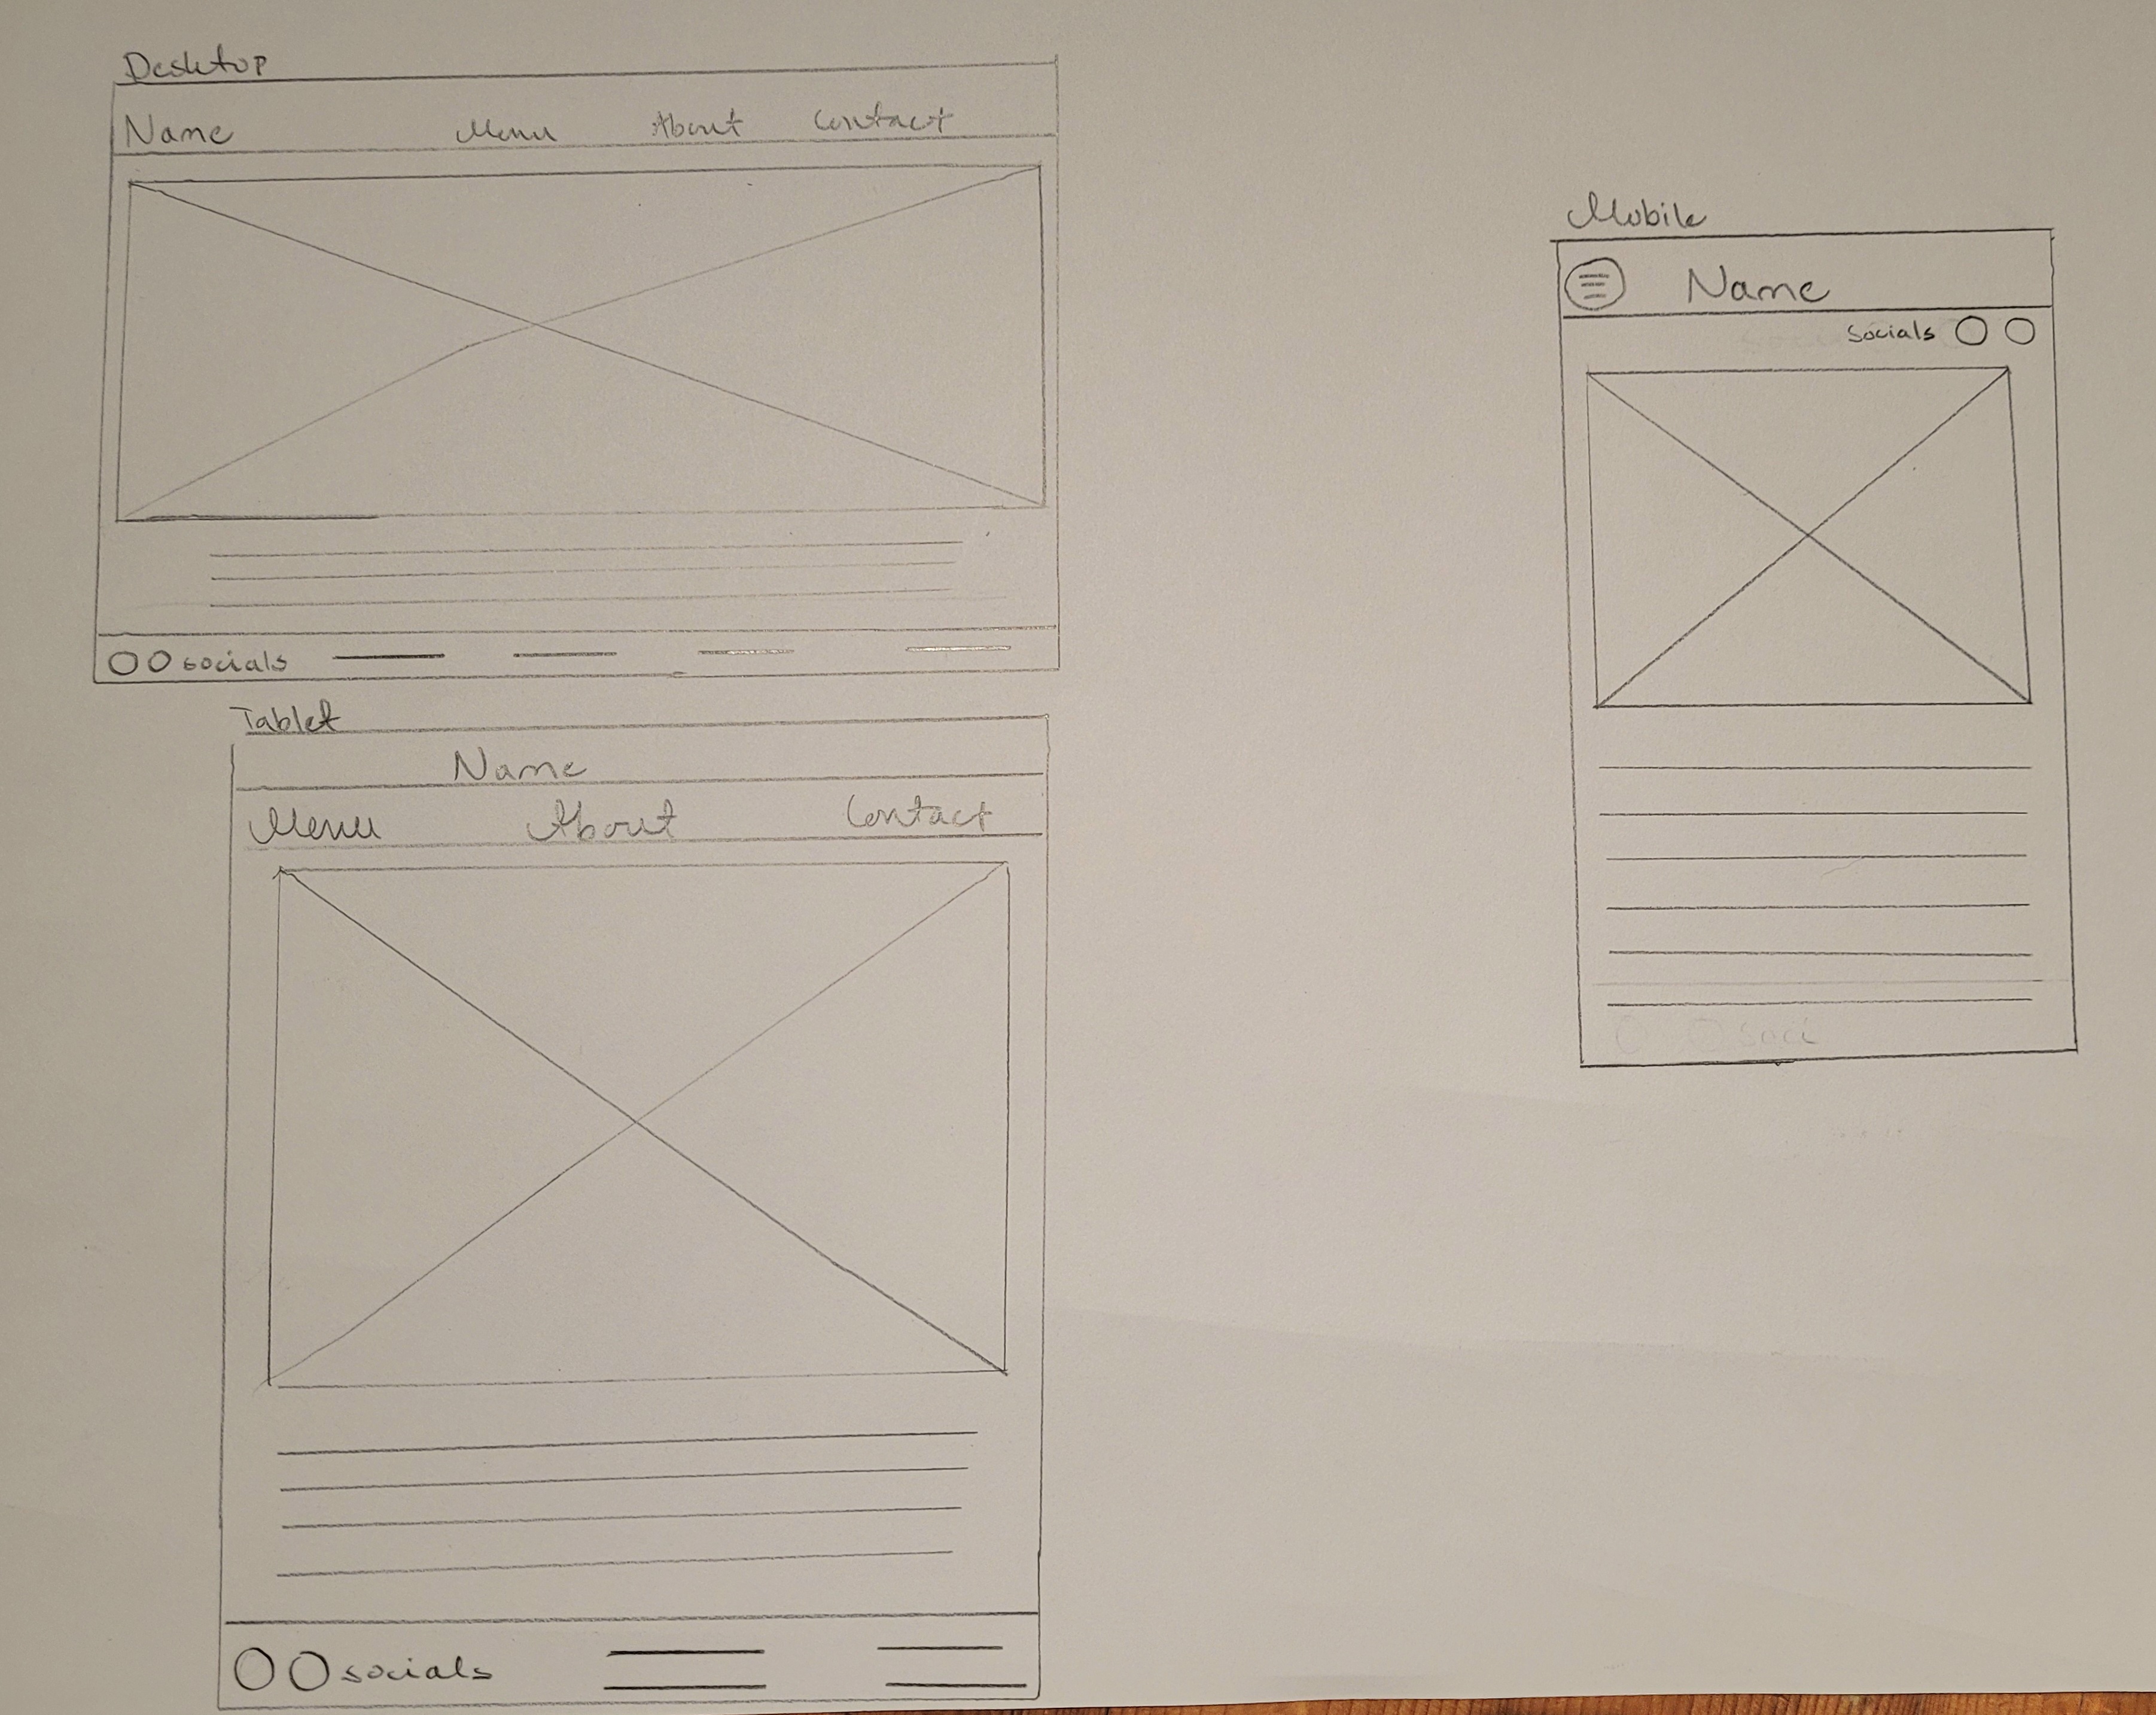 Desktop
Name Menu About Contact
socials
Tablet
Name
Menu About Contact
socials
Mobile
Name
socials